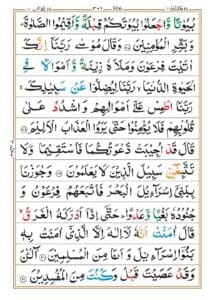 بُيُوْتًا وَّاجْعَلُوْا بُيُوْتَكُمْ قِبْلَةً وَّاَقِيْمُوا الصَّلٰوةَ ؕ
وَبَشِّرِ الْمُؤْمِنِيْنَ وَقَالَ مُوْسٰى رَبَّنَاۤ اِنَّكَ
اٰتَيْتَ فِرْعَوْنَ وَمَلَاَهٗ زِيْنَةً وَّاَمْوَالًا فِى
الْحَيٰوةِ الدُّنْيَا ۙ رَبَّنَا لِيُضِلُّوْا عَنْ سَبِيْلِكَ ۚ
رَبَّنَا اطْمِسْ عَلٰٓى اَمْوَالِهِمْ وَاشْدُدْ عَلٰى
قُلُوْبِهِمْ فَلَا يُؤْمِنُوْا حَتّٰى يَرَوُا الْعَذَابَ الْاَلِيْمَ
قَالَ قَدْ اُجِيْبَتْ دَّعْوَتُكُمَا فَاسْتَقِيْمَا وَلَا
تَتَّبِعٰٓنِّ سَبِيْلَ الَّذِيْنَ لَا يَعْلَمُوْنَ وَجَاوَزْنَا
بِبَنِىْۤ اِسْرَآءِيْلَ الْبَحْرَ فَاَتْبَعَهُمْ فِرْعَوْنُ وَ
جُنُوْدُهٗ بَغْيًا وَّعَدْوًا ؕ حَتّٰىۤ اِذَاۤ اَدْرَكَهُ الْغَرَقُ ۙ
قَالَ اٰمَنْتُ اَنَّهٗ لَاۤ اِلٰهَ اِلَّا الَّذِىْۤ اٰمَنَتْ بِهٖ
بَنُوْۤا اِسْرَآءِيْلَ وَاَنَا مِنَ الْمُسْلِمِيْنَ آٰلْـٰٔنَ
وَقَدْ عَصَيْتَ قَبْلُ وَكُنْتَ مِنَ الْمُفْسِدِيْنَ